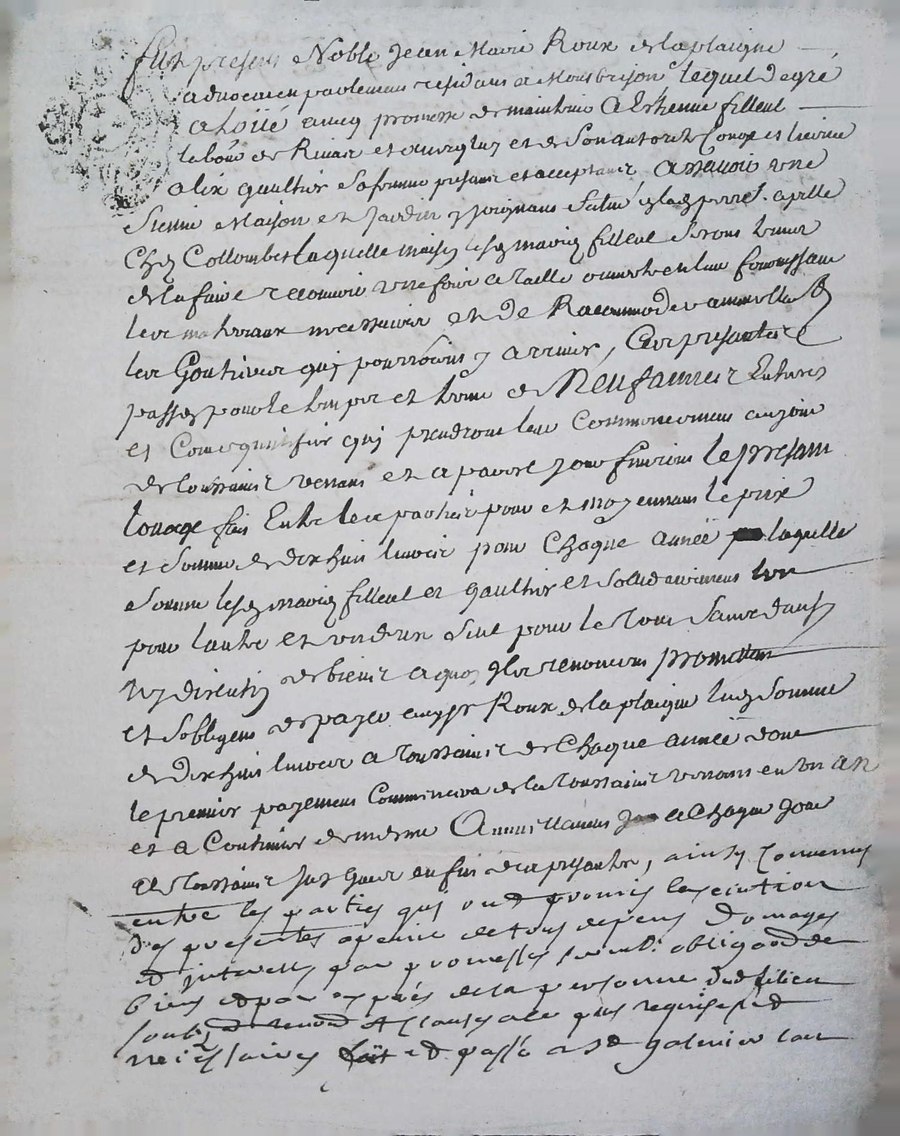 Fut presens Noble Jean Marie Roux de la plaigne
advocat en parlement residant a Montbrison lequel de gré
a Loüé avecq promesse de maintenir a Estienne filleul
et de son autorité Conge et licence
alix gaultier sa femme presente et acceptante assavoir une
sienne Maison et Jardin y joignant Situé
Chez Collombet laquelle maison lesd mariez filleul seront tenus
de la faire recouvrir une fois a taille ouverte en leur fournissant
leur materiaux necessaires et de Racommoder annuellem
leur Goutieres quy pourroient y arriver, Cette presente
passée pour le temps et terme de Neuf années Entieres
et Consequutives quy prendront leur Commencement au jour
de toussaint venant et a pareil jour finiront le presant
louage fait Entre lesd parties pour et moyennant le prix
et somme de dix huit livres pour Chaque année laquelle
somme lesd mariez filleul et gaultier et solidairement l'un
pour l'autre et un d'eux seul pour le tout sans division
ny discution de biens a quoy ils renoncent promettent
et s'obligent de payer aud sr Roux de la plaigne lad somme
de dix huit livres a toussaint de Chaque année dont
le premier payement Commencera de la toussaint venant en un an
et a Continuer de mesme Annuellement a Chaque jour
de toussaint jusques en fin de la presente, ainsy Convenu
entre les parties quy ont promis l'execution
des presentes a peine de tous depens domages
et interests par promesses serment obligaon de
biens et par exprés de la personne dud filleul
soubz et renond et clauses a ce plus requises et
necessaires fait et passé a St galmier